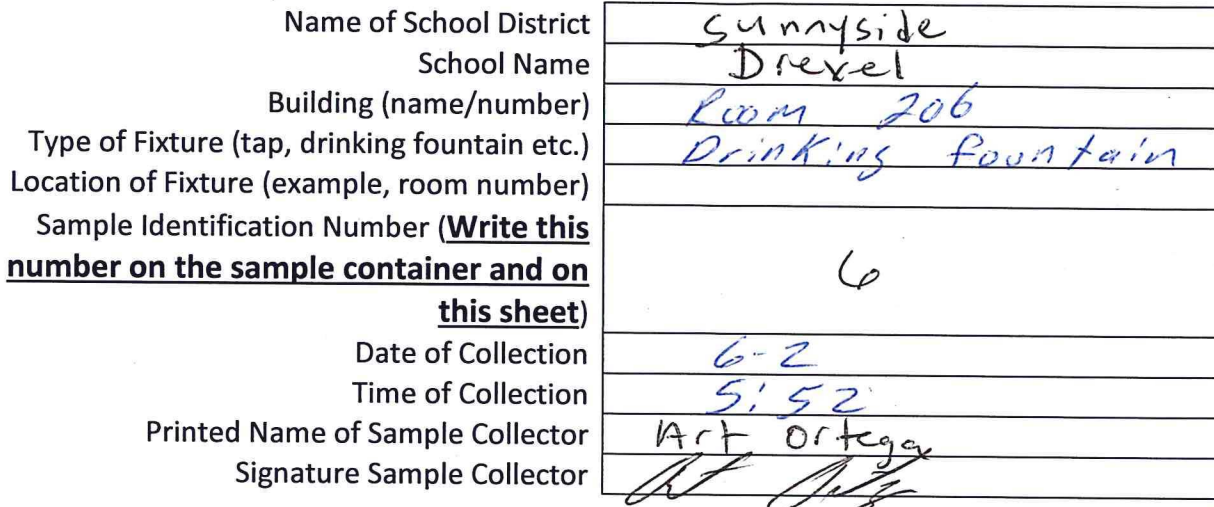 Name of School District Sunnyside
School Name Drexel
Building (name/number) Room 206
Type of Fixture (tap, drinking fountain etc.) Drinking fountain
Location of Fixture (example, room number)
Sample Identification Number (Write this
number on the sample container and on 6
this sheet)
Date of Collection 6-2
Time of Collection 5:52
Printed Name of Sample Collector Art Ortega
Signature Sample Collector